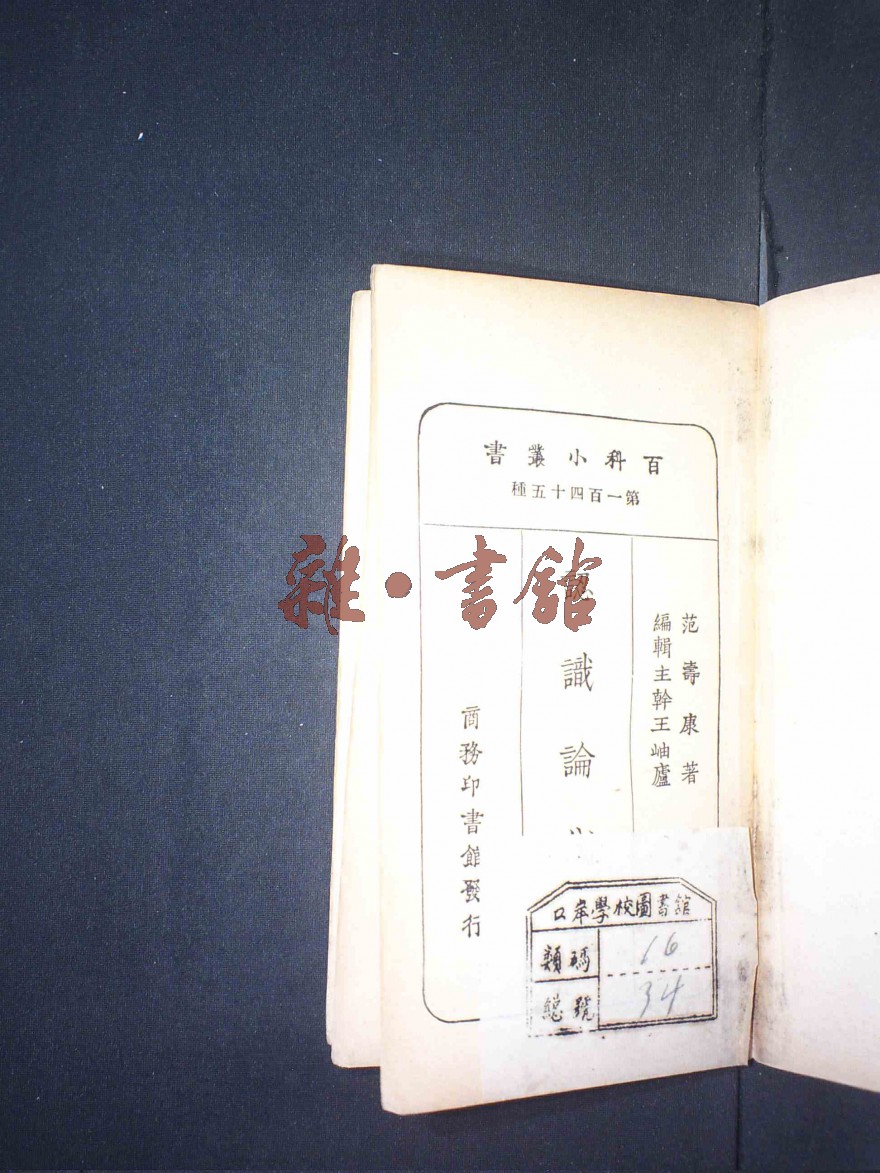 百科小叢書
第一百四十五種
范壽康著
編輯主幹王岫廬
識論
商務印書館發行
雜·書館
口岸學校圖書館
類碼 16
總號 34